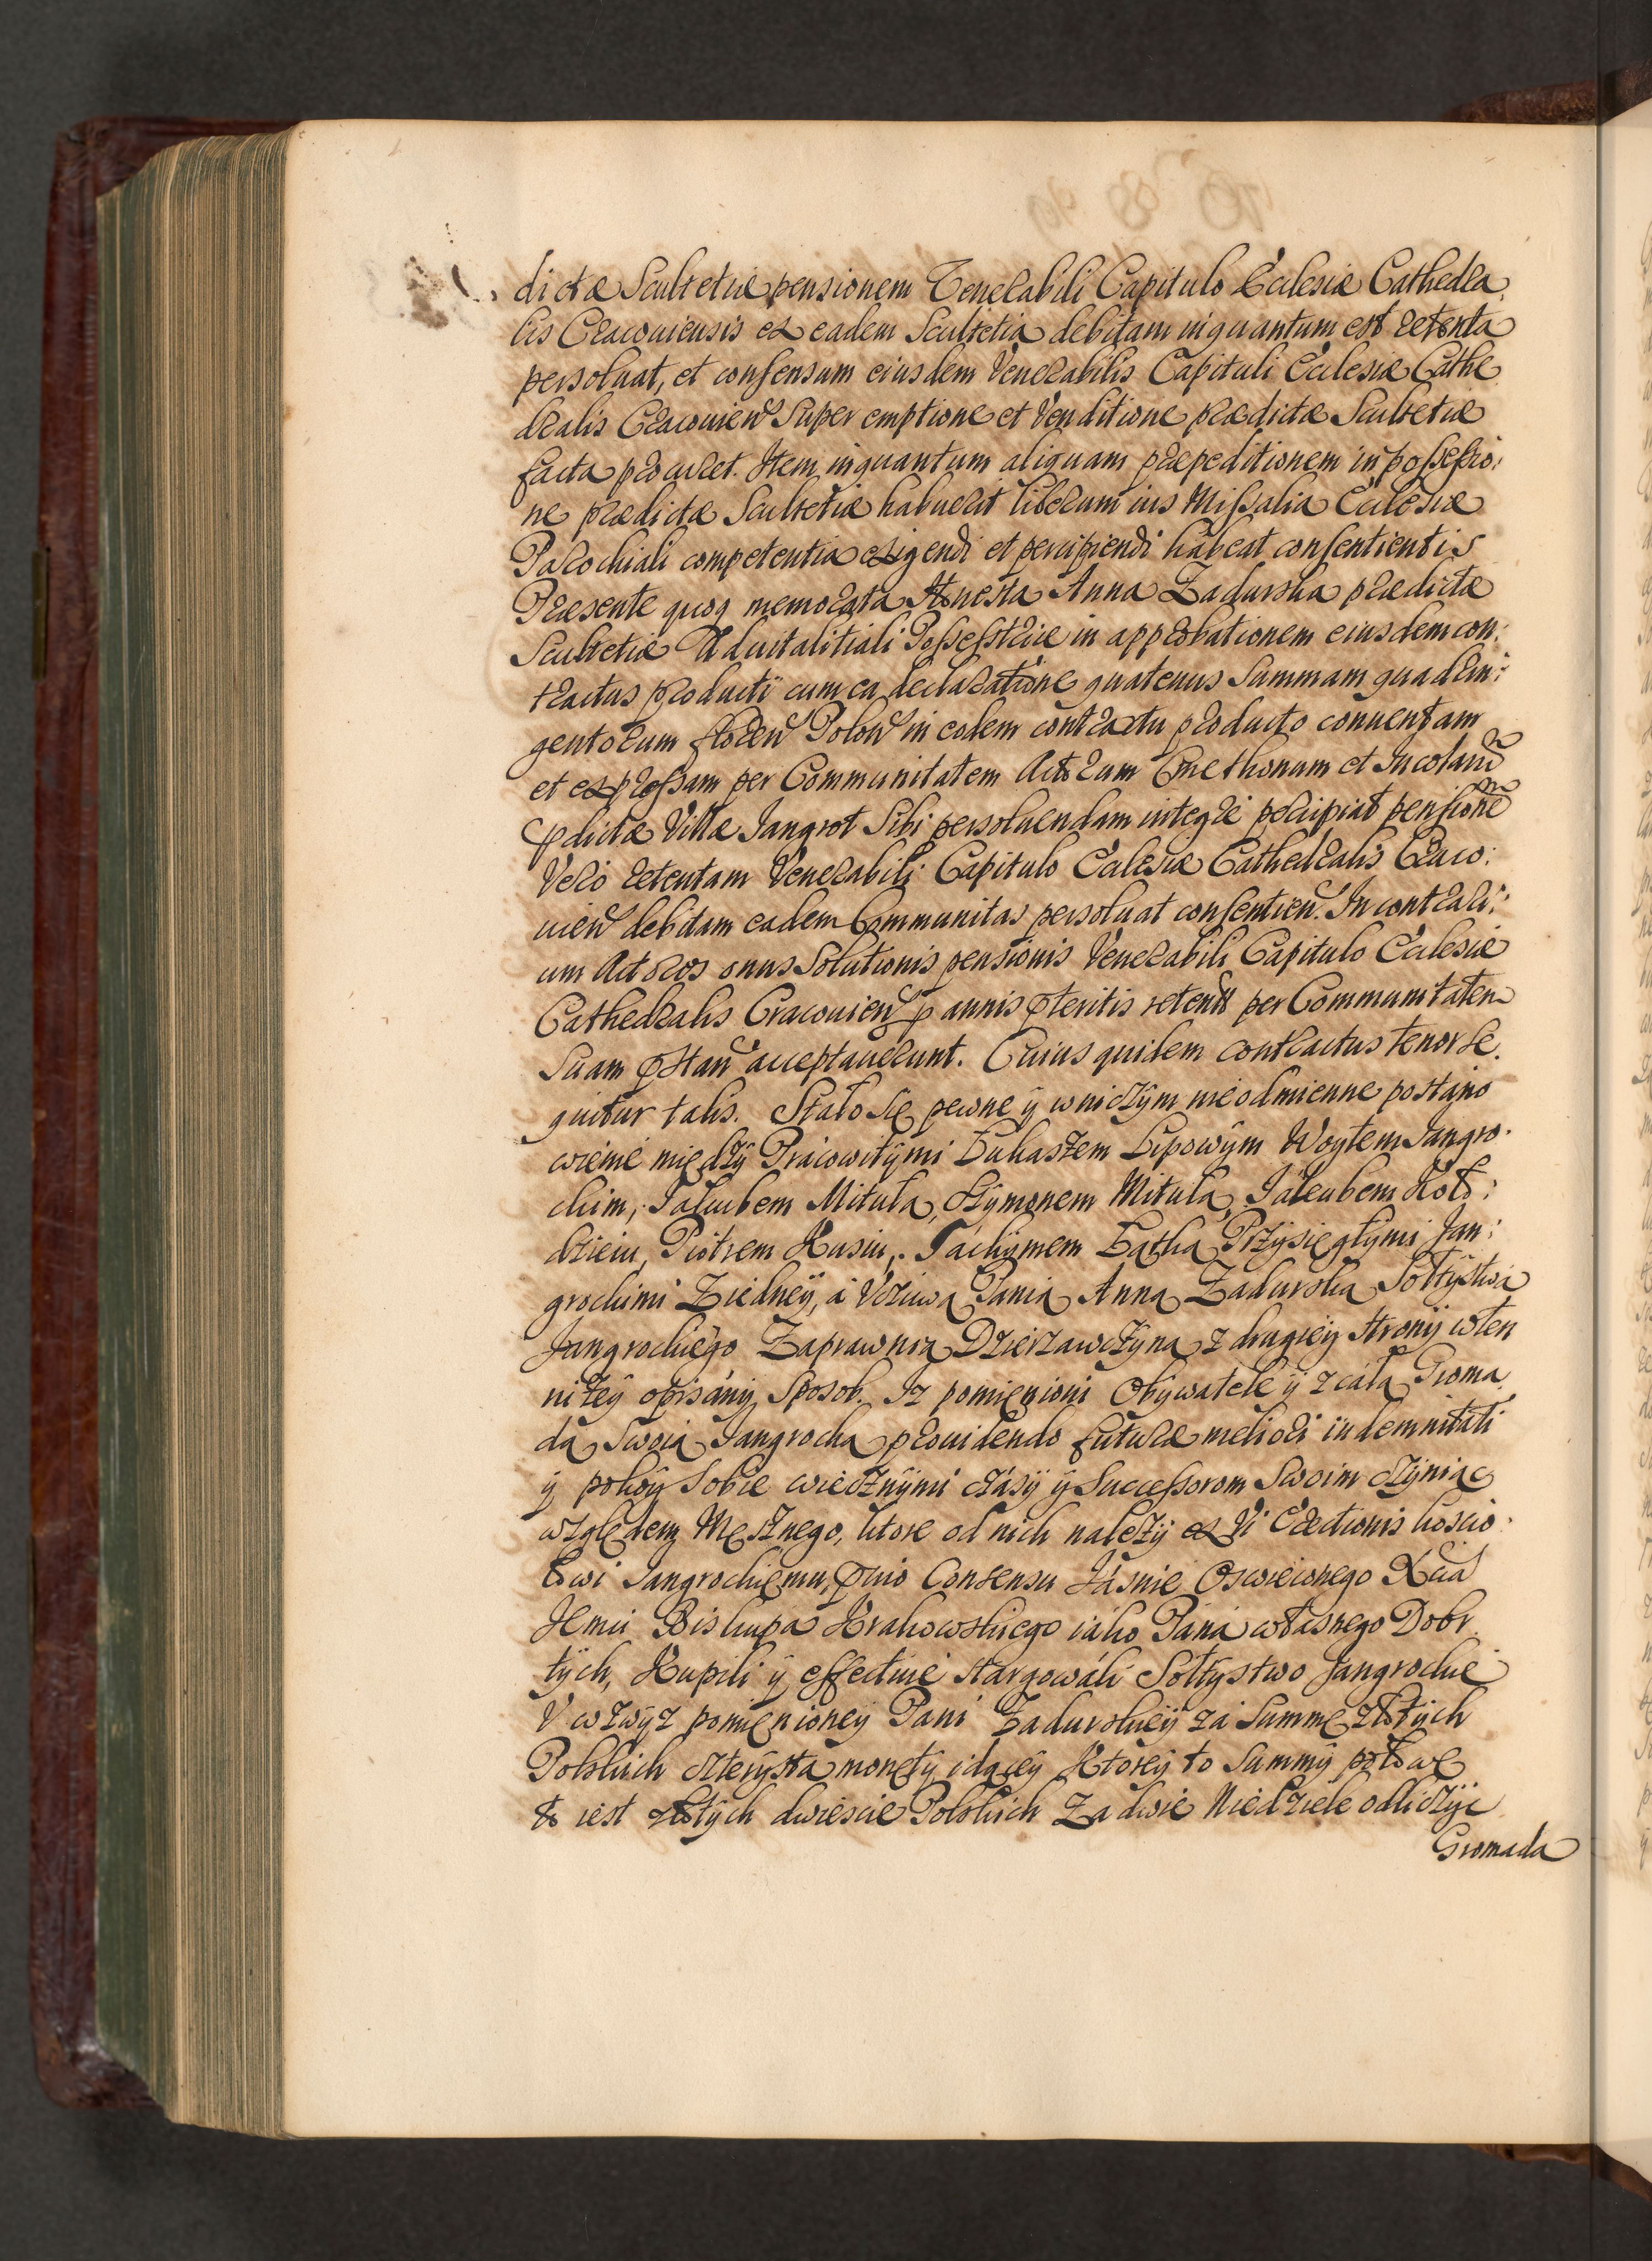 dictæ Scultetiæ pensionem Venerabili Capitulo Ecclesiæ Cathedra
lis Cracoviensis ex eadem Scultetia debitam inquantum est retenta
persolvat, et consensum eiusdem Venerabilis Capituli Ecclesiæ Cathe
dralis Cracovien Super emptione et Venditione prædictæ Scultetiæ
facta procuret. Item inquantum aliquam præpeditionem in possessio:
ne prædictæ Scultetiæ habuerit liberum ius Missalia Ecclesiæ
Parochiali competentia exigendi et percipiendi habeat consentientis
Præsente quoq memorata Honesta Anna Zadurska prædictæ
Scultetiæ Advitalitiali Possesstrice in approbationem eiusdem con:
tractus producti cum ea declaratione quatenus Summam quadrin:
gentorum floren Polon in eodem contractu producto conventam
et expressam per Communitatem Actorum Cmethonum et Incolarum
pdictæ Villæ Jangrot Sibi persolvendam integre percipiat pensionem
Vero retentam Venerabili Capitulo Ecclesiæ Cathedralis Craco:
vien debitam eadem Communitas persolvat consentien. In contrari:
um Actores onus Solutionis pensionis Venerabili Capitulo Ecclesiæ
Cathedralis Cracovien p annis pteritis retent per Communitatem
Suam pstan acceptaverunt. Cuius quidem contractus tenor se
quitur talis. Stało się pewne ÿ wniczÿm nieodmienne postano
wienie międzÿ Pracowitÿmi Łukaszem Lipowÿm Woytem Jangro
ckim, Jakubem Mitułą, Szÿmonem Mitułą, Jakubem Koło:
dzieiu, Piotrem Kusiu, Jachÿmem Łatką Przÿsięgłÿmi Jan:
grockimi Ziedneÿ, á Vcziwą Panią Anną Zadurską Sołtÿstwá
Jangrockiégo Zaprawnią Dzierżawczÿną z drugieÿ stronÿ wten
niżeÿ opisánÿ Sposob. Iz pomięnioni Obÿwatele ÿ z cáłą Groma
dą Swoią Jangrocką providendo futuræ meliori indemnitati
ÿ pokoÿ Sobie wiecznÿmi czásÿ ÿ Successorom Swoim czÿniąc
względem Mesznego, ktore od nich należÿ ex Vi Erectionis koscio
łowi Jangrockiemu, pvio Consensu Jásnie Oswieconego Xcia
Jemci Biskupa Krakowskiego iáko Páná własnego Dobr
tÿch, Kupili ÿ effective stargowáli Sołtÿstwo Jangrockie
V wzwÿż pomięnioneÿ Pani Zadurskieÿ zá Summę złotÿch
Polskich czterÿsta monetÿ idąceÿ Ktoreÿ to Summÿ połowę
to iest złotÿch dwiescie Polskich Za dwie Niedziele odliczÿć
Gromada